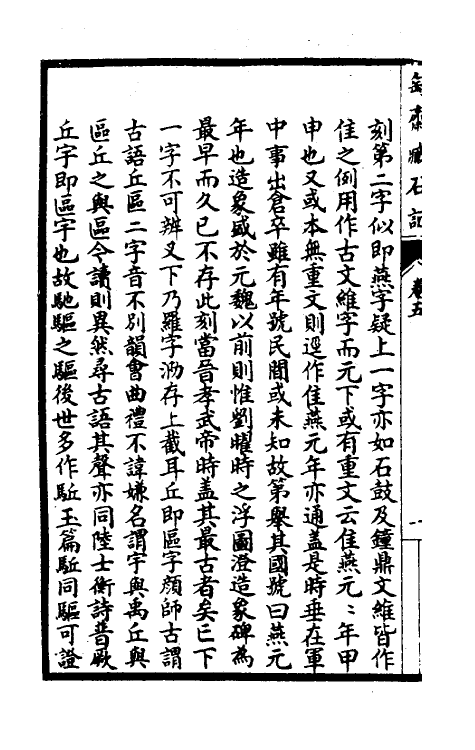 匋齋臧石記
卷五
一
刻第二字似即燕字疑上一字亦如石鼓及鐘鼎文維皆作
隹之例用作古文維字而元下或有重文云隹燕元〻年甲
申也又或本無重文則逕作隹燕元年亦通盖是時垂在軍
中事出倉卒雖有年號民間或未知故第舉其國號曰燕元
年也造象盛於元魏以前則惟劉曜時之浮圖澄造象碑為
最早而久已不存此刻當晉孝武帝時盖其最古者矣㠯下
一字不可辨又下乃羅字泐存上截耳丘即區字顔師古謂
古語丘區二字音不別韻會曲禮不諱嫌名謂宇與禹丘與
區丘之與區今讀則異然尋古語其聲亦同陸士衡詩普厥
丘宇即區宇也故馳驅之驅後世多作駈玉篇駈同驅可證